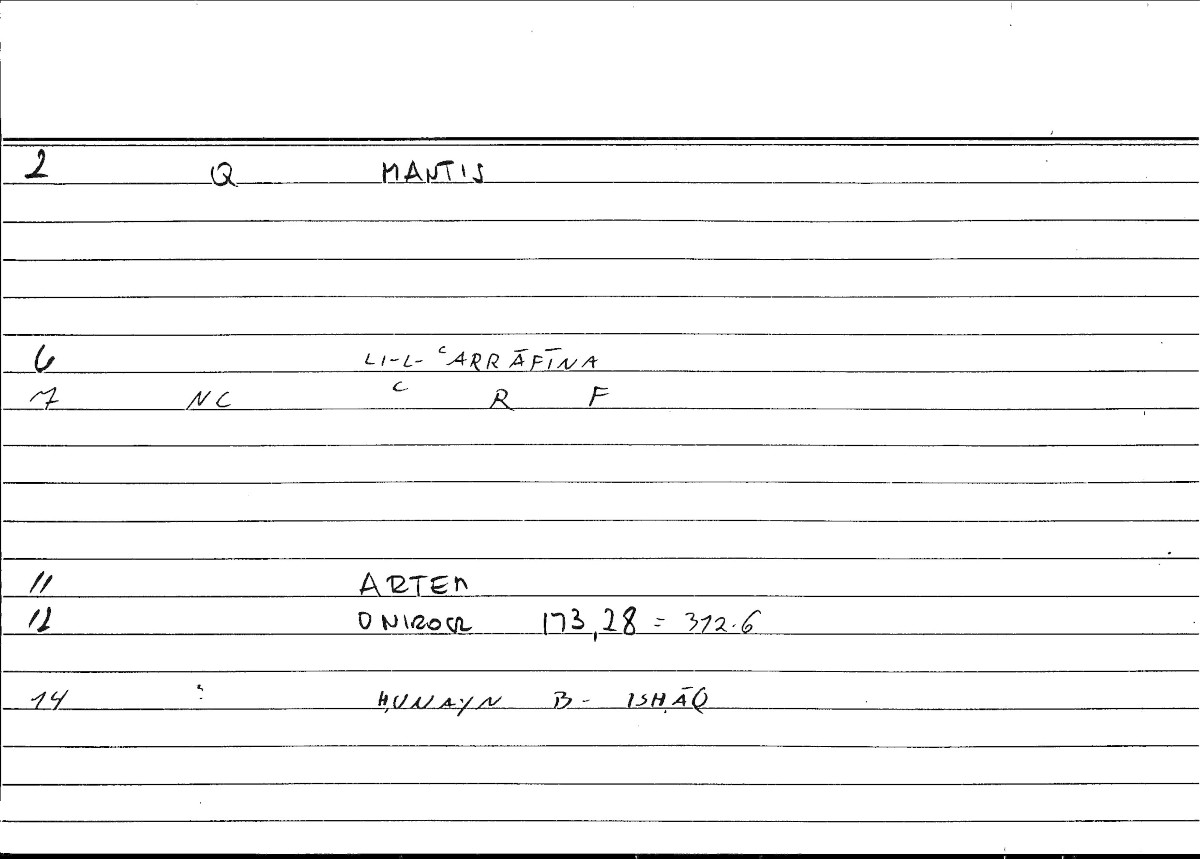 2 Q MANTIS
6 LI-L-ʿARRĀFĪNA
7 NC ʿ R F
11 ARTEM
12 ONIROCR 173,28 = 312.6
14 : ḤUNAYN B- ISḤĀQ